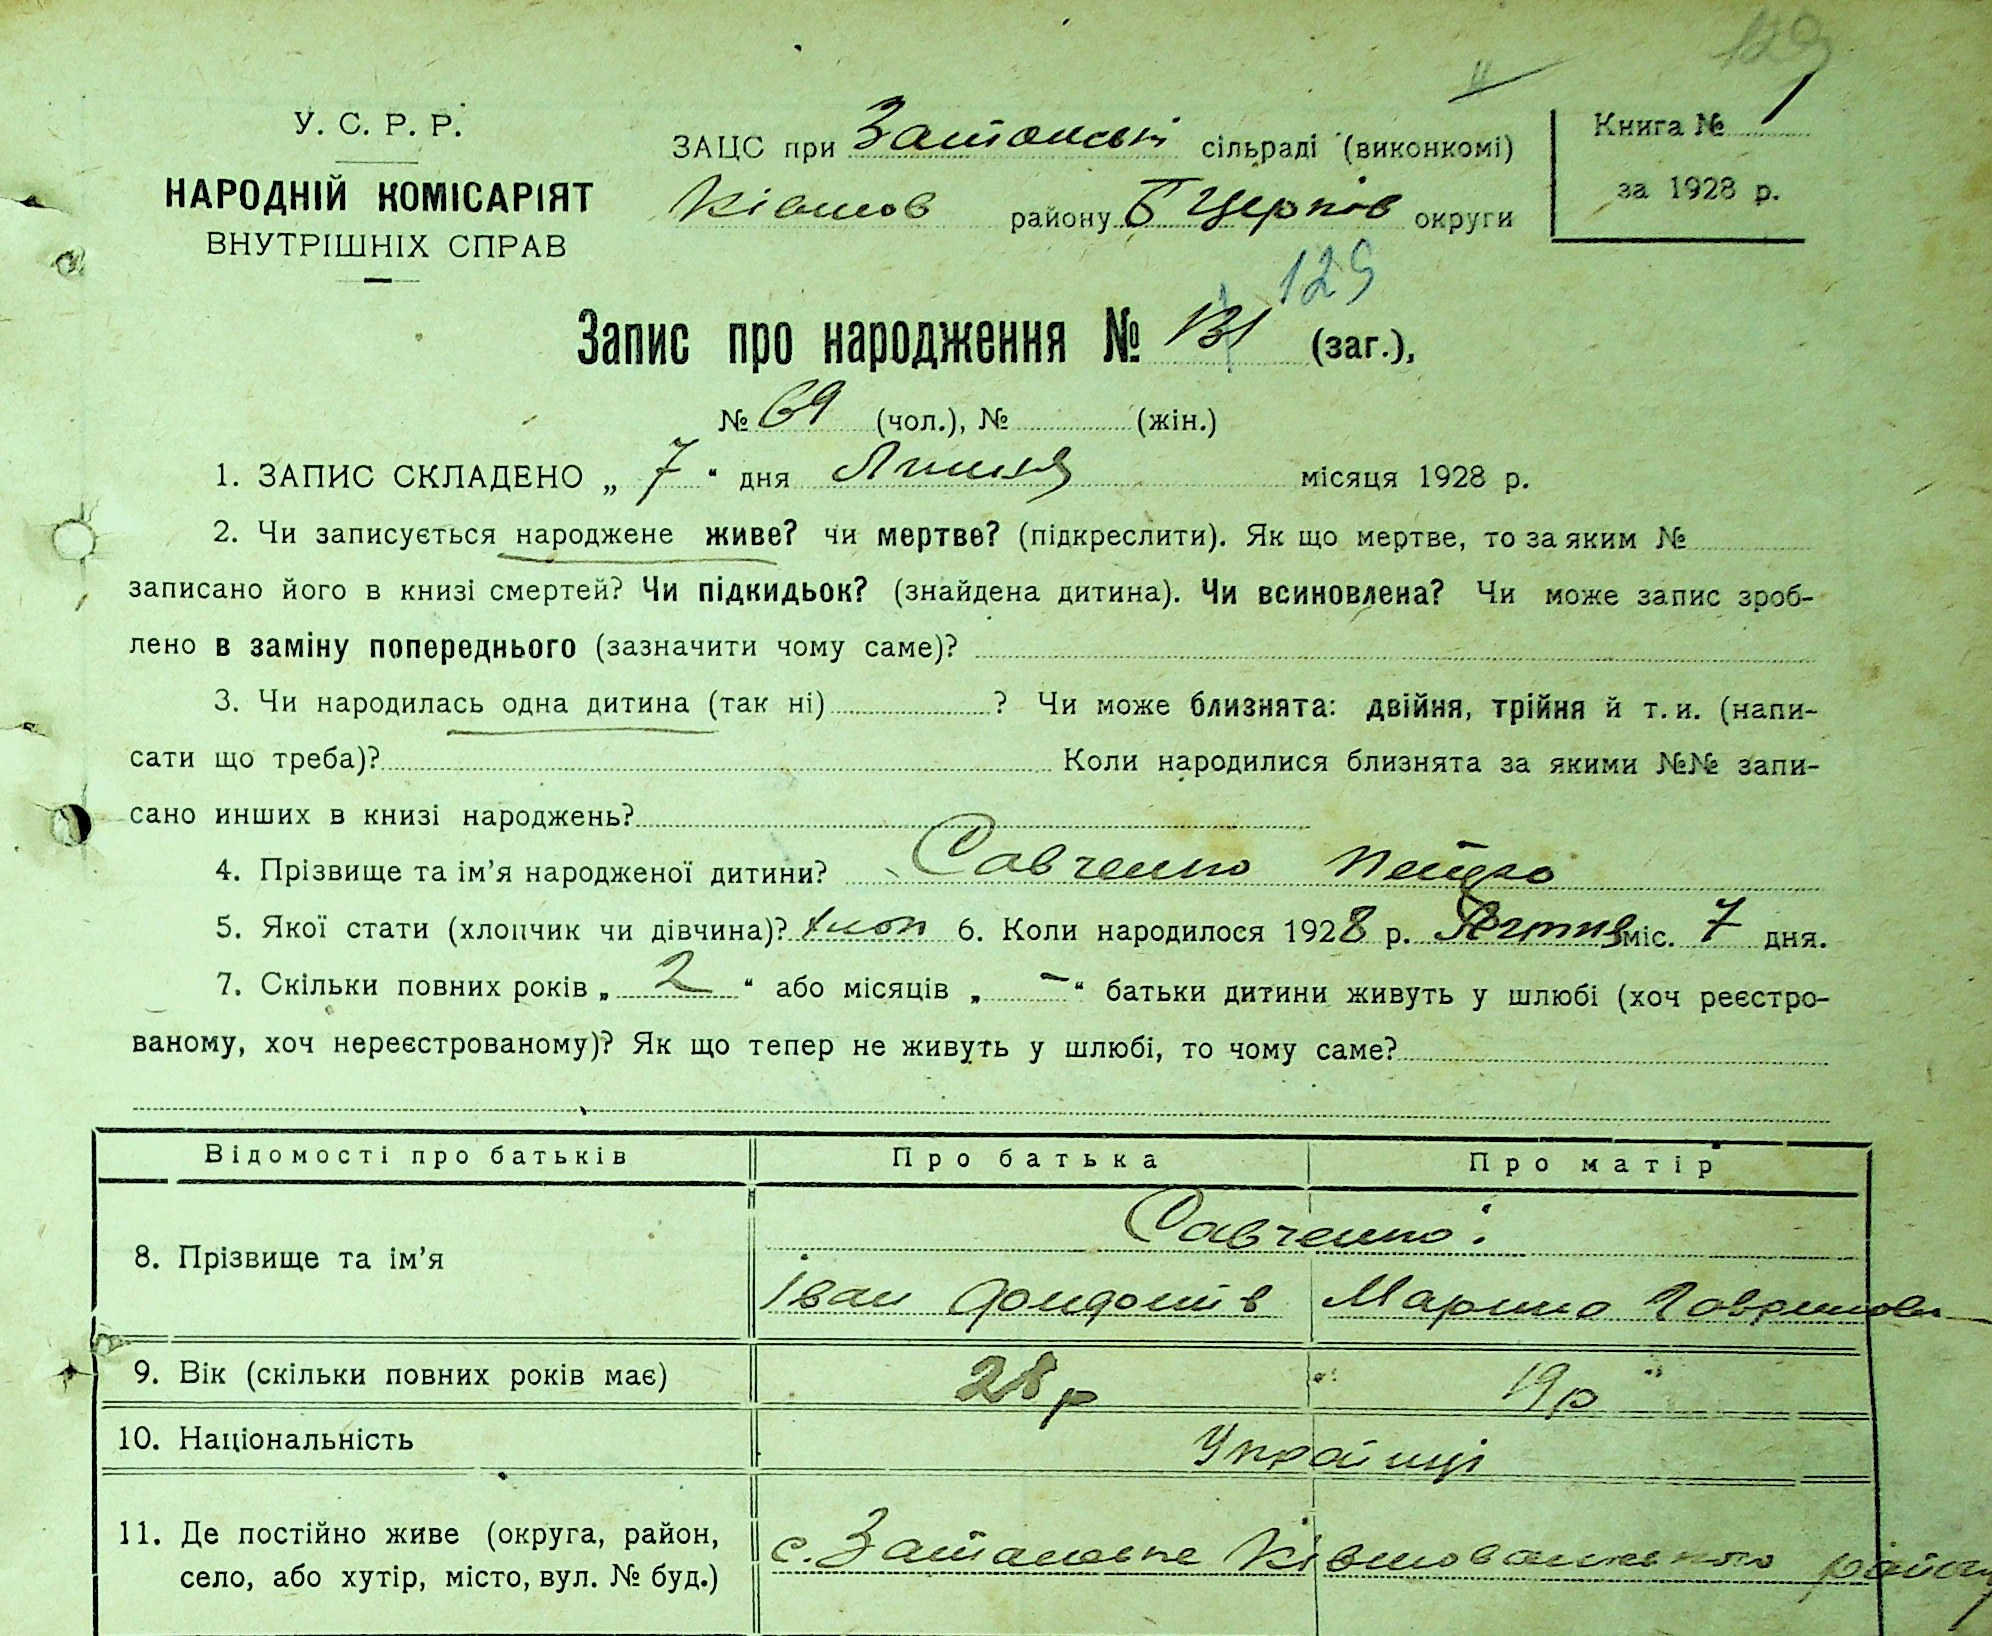 129
У. С. Р. Р.
НАРОДНІЙ КОМІСАРІЯТ
ВНУТРІШНІХ СПРАВ
ЗАЦС при сільраді (виконкомі)
району Б Церків округи
Книга № 1
за 1928 р.
129
Запис про народження № 131 (заг.),
№ 69 (чол.), № (жін.)
1. ЗАПИС СКЛАДЕНО „ 7 “ дня Липня місяця 1928 р.
2. Чи записується народжене живе? чи мертве? (підкреслити). Як що мертве, то за яким №
записано його в книзі смертей? Чи підкидьок? (знайдена дитина). Чи всиновлена? Чи може запис зроб-
лено в заміну попереднього (зазначити чому саме)?
3. Чи народилась одна дитина (так ні) ? Чи може близнята: двійня, трійня й т. и. (напи-
сати що треба)? Коли народилися близнята за якими №№ запи-
сано инших в книзі народжень?
4. Прізвище та ім’я народженої дитини? Савченко Петро
5. Якої стати (хлопчик чи дівчина)? хлоп 6. Коли народилося 1928 р. міс. 7 дня.
7. Скільки повних років „ 2 “ або місяців „ — “ батьки дитини живуть у шлюбі (хоч реєстро-
ваному, хоч нереєстрованому)? Як що тепер не живуть у шлюбі, то чому саме?
Відомості про батьків Про батька Про матір
8. Прізвище та ім’я Савченко:
Іван Марина
9. Вік (скільки повних років має) 28 р 19 р
10. Національність Українці
11. Де постійно живе (округа, район,
село, або хутір, місто, вул. № буд.)
с. району